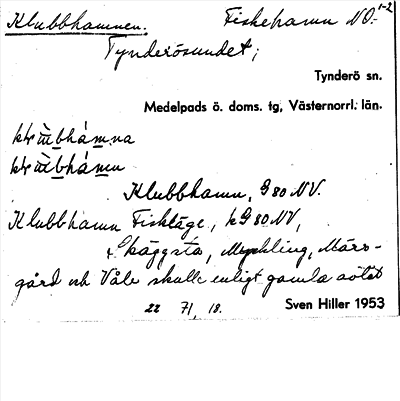 Klubbhamnen. Fiskehamn NO. 1-2
Tynderösundet;
Tynderö sn.
Medelpads ö. doms. tg, Västernorrl. län.
Klubbhamn, G 80 NV.
Klubbhamn Fiskläge, k G 80 NV,
Skäggsta, Myckling, Märs-
gård och Våle skulle enligt gamla
22 71, 18. Sven Hiller 1953